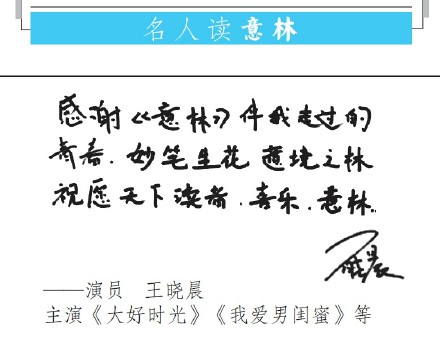 名人读意林
感谢《意林》伴我走过的
青春.妙笔生花 意境之林
祝愿天下读者.喜乐.意林.
晓晨
——演员 王晓晨
主演《大好时光》《我爱男闺蜜》等